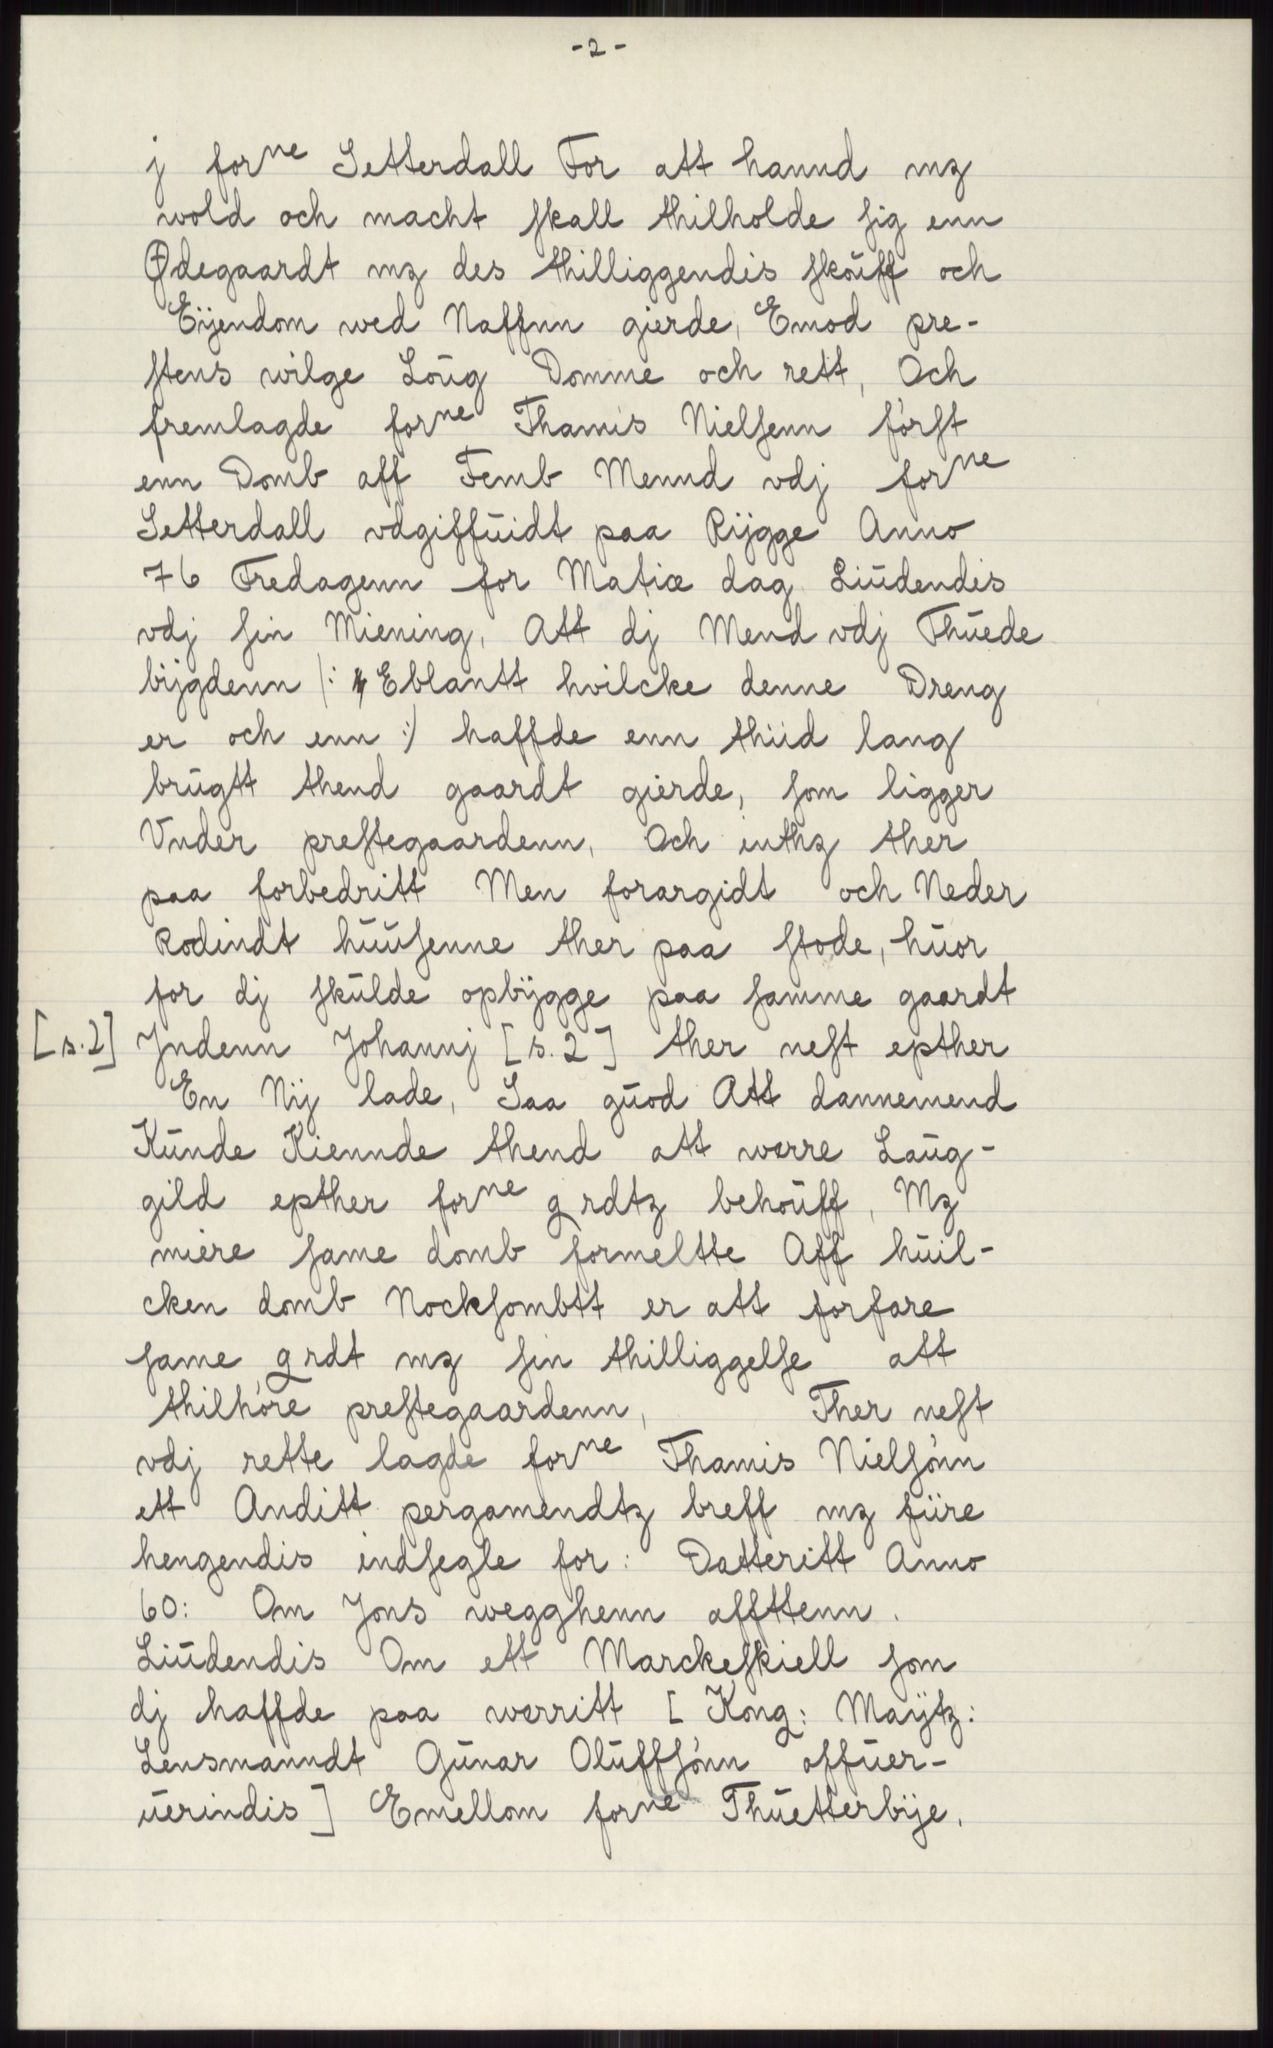 -2-
j forne Setterdall For att hannd mz
wold och macht skall thilholde sig enn
Ødegaardt mz des thilliggendis skoŭff och
Eÿendom wed Naffnn gierde, Emod pre-
stens wilge Loŭg Domme och rett, Och
fremlagde forne Thamis Nielsenn först
enn Domb aff Femb Mennd vdj forne
Setterdall vdgiffŭidt paa Rÿgge Anno
76 Fredagenn for Matiæ dag Liŭdendis
vdj sin Miening, Att dj Mend vdj Thŭede
bÿgdenn /: Eblantt hvilcke denne Dreng
er och enn :/ haffde enn thiid lang
brŭgtt thend gaardt gierde, som ligger
Vnder prestegaardenn, Och inthz ther
paa forbedritt Men forargidt och Neder
Rodindt hŭŭsenne ther paa stode, hŭor
for dj skŭlde opbÿgge paa samme gaardt
[s.2] Jndenn Johannj [s.2] ther nest epther
En Nÿ lade, Saa gŭod Att dannemend
Kŭnde Kiennde thend att werre Laŭg-
gild epther forne grdtz behoŭff, Mz
miere same domb formeltte Aff hŭil-
cken domb Nocksombtt er att forfare
same grdt mz sin thilliggelse att
thilhöre prestegaardenn, Ther nest
vdj rette lagde forne Thamis Nielsönn
ett Anditt pergamendtz breff mz fiire
hengendis indsegle for: Datteritt Anno
60: Om Jons wegghenn affttenn.
Liŭdendis Om ett Marckeskiell som
dj haffde paa werritt [ Kong: Maÿtz:
Lensmanndt Gŭnar Olŭffsönn offŭer-
ŭerindis] Emellom forne Thŭetterbÿe.